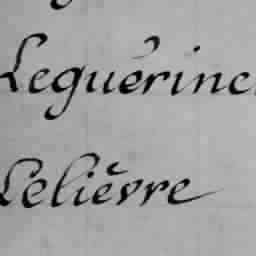 Leguérinel
Lelièvre